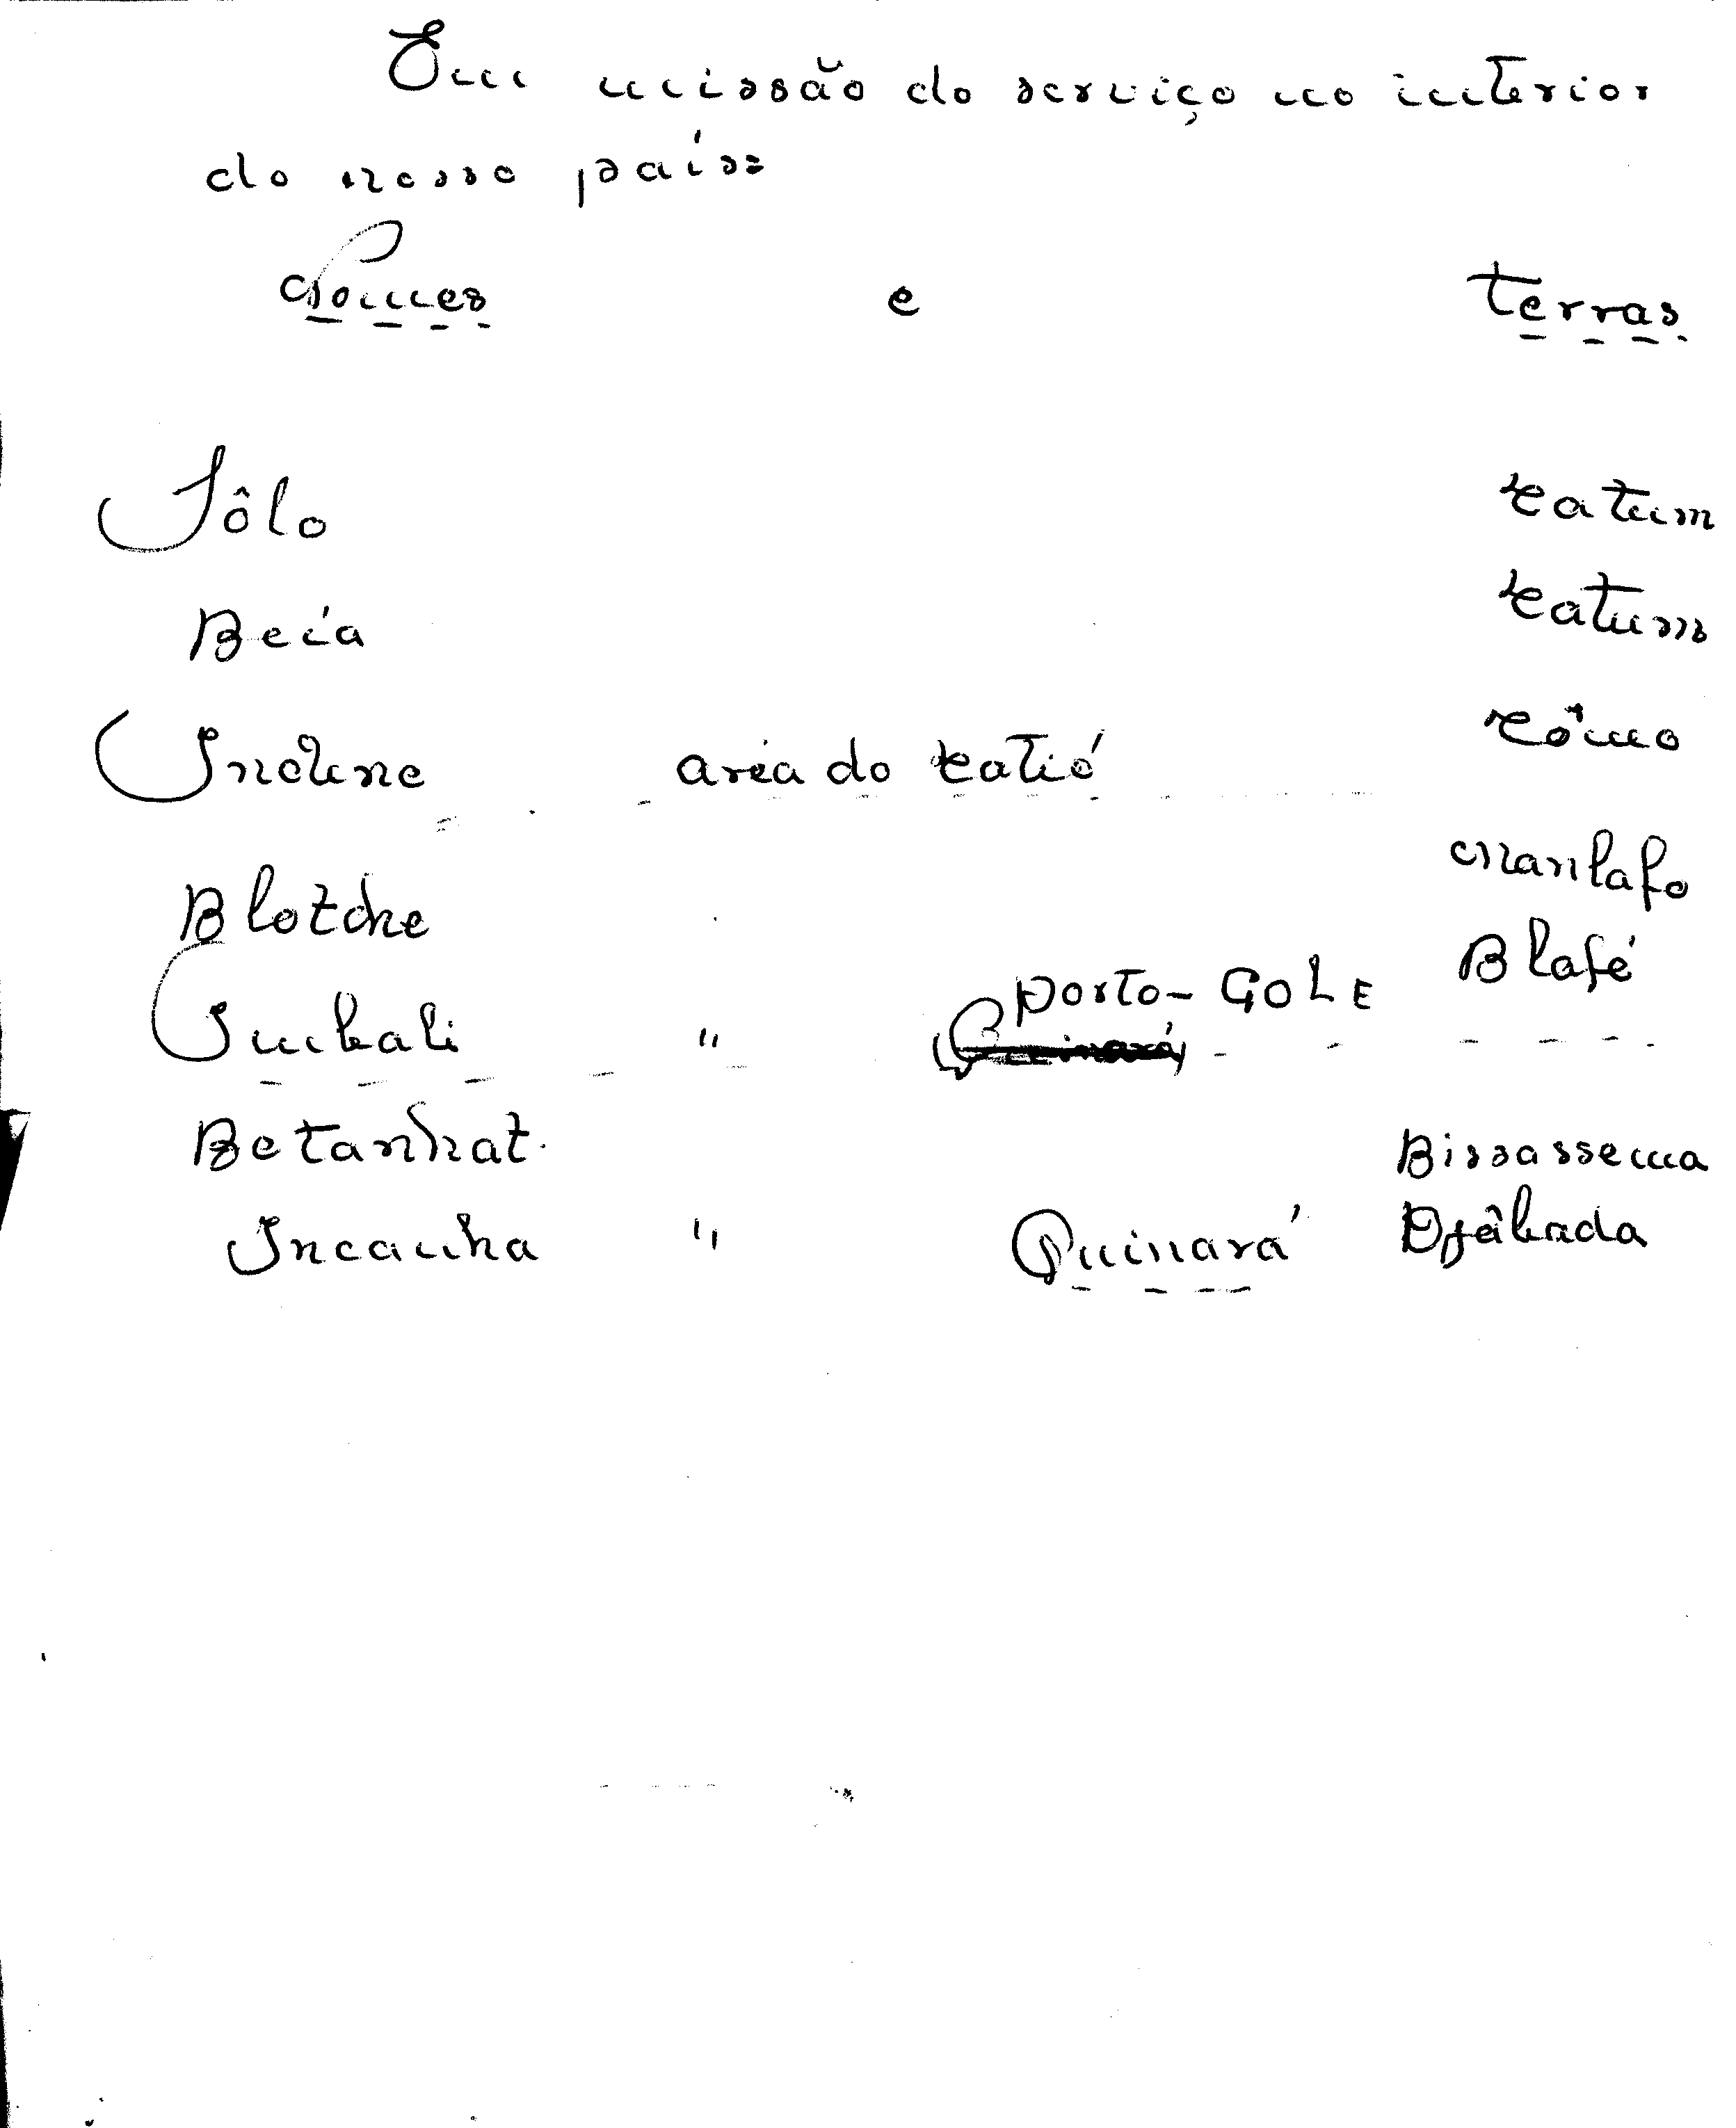 Em missão do serviço no interior
do nosso país=
Nomes e terras
Sôlo Catum
Beia Catum
Indene area do Catió Cômo
Blotche Manlafo
Blafé
Imbali " Porto-GOLE
Betanhat. Bissassema
Incanha " Quinará Djâbada